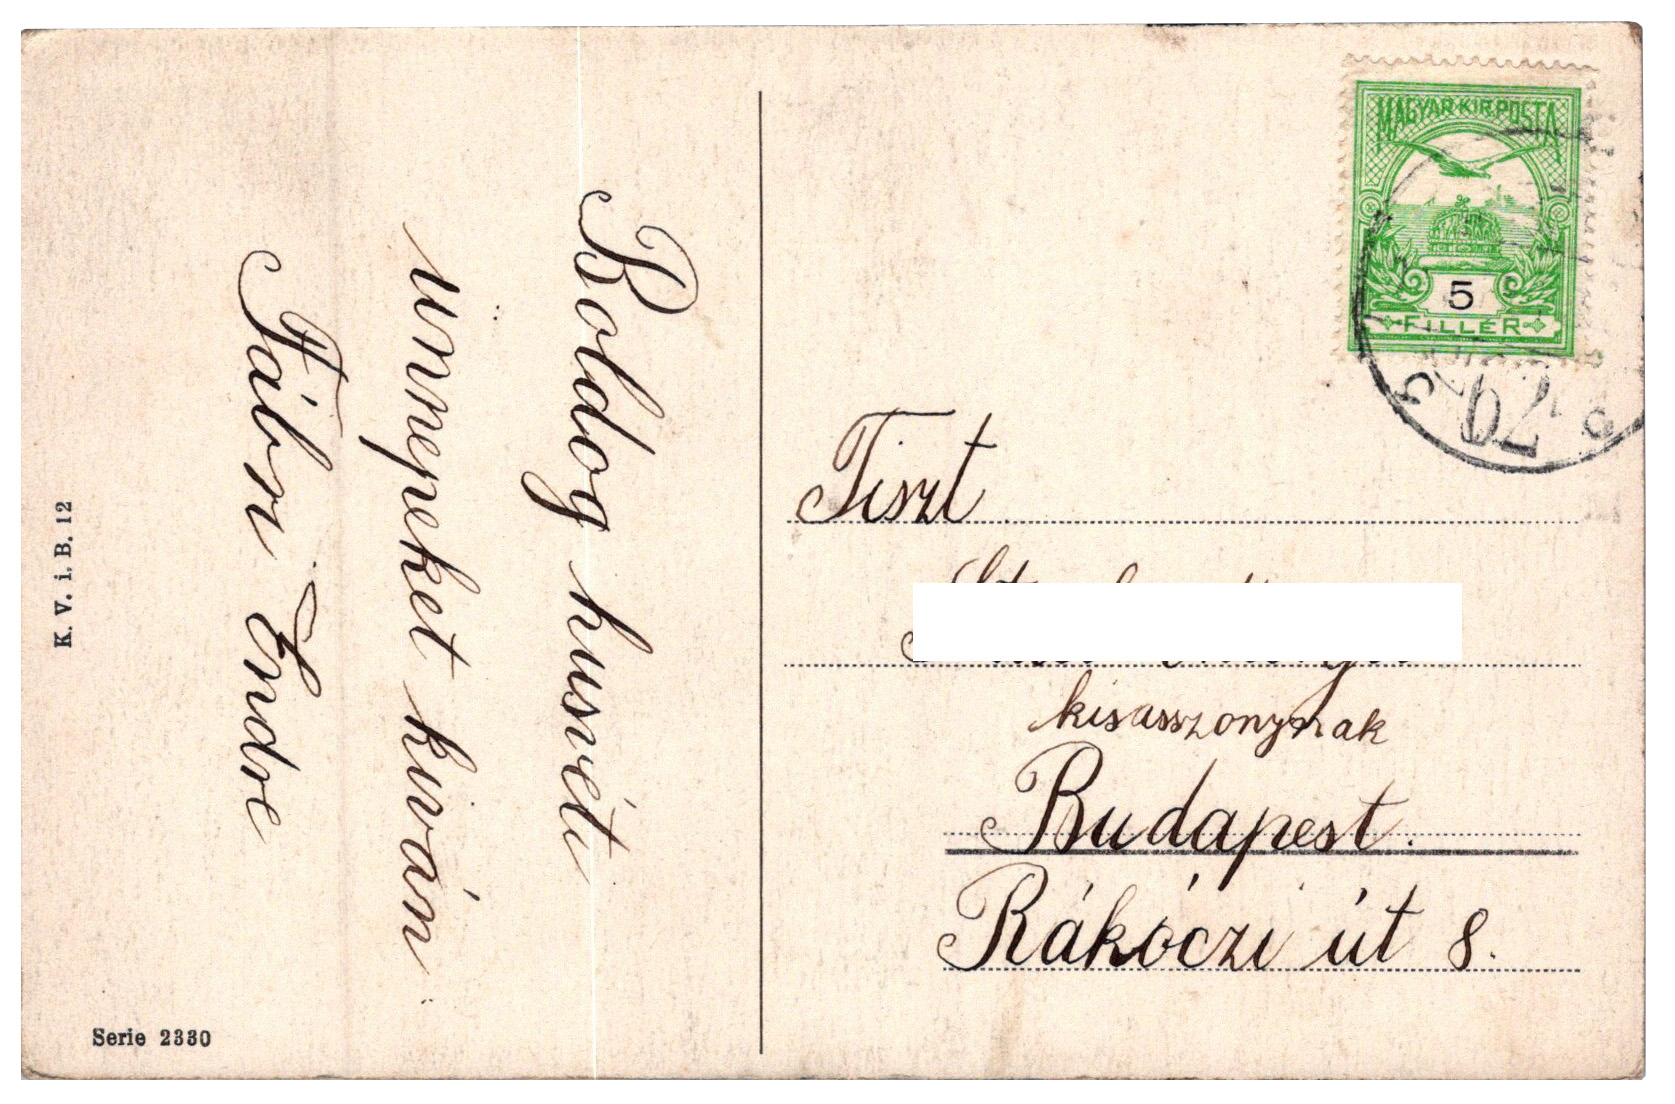 Boldog husvéti
unnepeket kiván
Fábri Endre
K. V. i. B. 12
Serie 2330
MAGYAR·KIR·POSTA
5
FILLÉR
Tiszt
kisasszonynak
Budapest.
Rákóczi út 8.